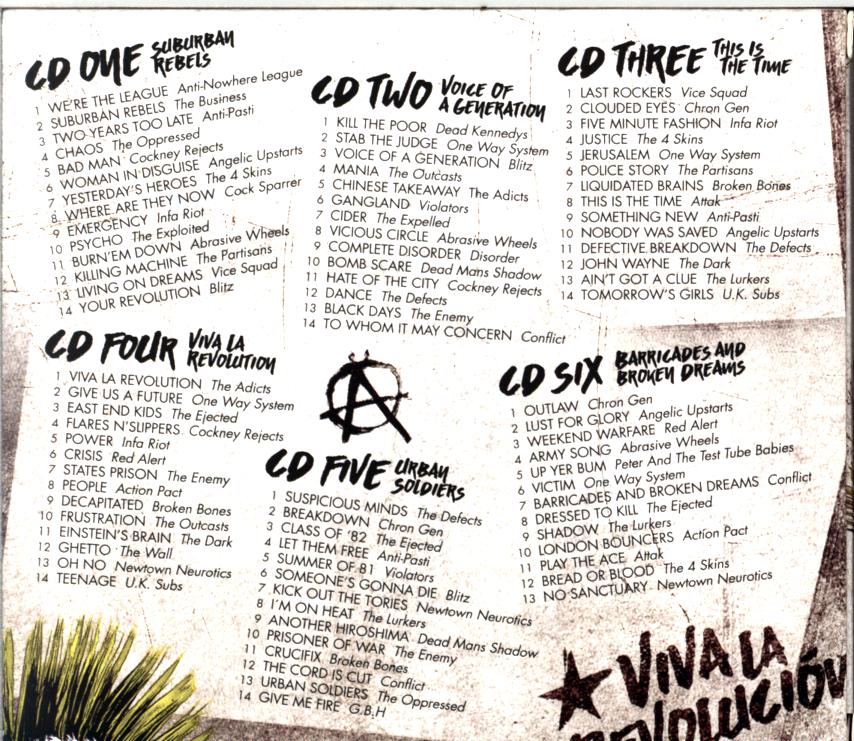 CD ONE SUBURBAN REBELS
1 WE'RE THE LEAGUE Anti-Nowhere League
2 SUBURBAN REBELS The Business
3 TWO YEARS TOO LATE Anti-Pasti
4 CHAOS The Oppressed
5 BAD MAN Cockney Rejects
6 WOMAN IN DISGUISE Angelic Upstarts
7 YESTERDAY'S HEROES The 4 Skins
8 WHERE ARE THEY NOW Cock Sparrer
9 EMERGENCY Infa Riot
10 PSYCHO The Exploited
11 BURN'EM DOWN Abrasive Wheels
12 KILLING MACHINE The Partisans
13 LIVING ON DREAMS Vice Squad
14 YOUR REVOLUTION Blitz
CD TWO VOICE OF A GENERATION
1 KILL THE POOR Dead Kennedys
2 STAB THE JUDGE One Way System
3 VOICE OF A GENERATION Blitz
4 MANIA The Outcasts
5 CHINESE TAKEAWAY The Adicts
6 GANGLAND Violators
7 CIDER The Expelled
8 VICIOUS CIRCLE Abrasive Wheels
9 COMPLETE DISORDER Disorder
10 BOMB SCARE Dead Mans Shadow
11 HATE OF THE CITY Cockney Rejects
12 DANCE The Defects
13 BLACK DAYS The Enemy
14 TO WHOM IT MAY CONCERN Conflict
CD THREE THIS IS THE TIME
1 LAST ROCKERS Vice Squad
2 CLOUDED EYES Chron Gen
3 FIVE MINUTE FASHION Infa Riot
4 JUSTICE The 4 Skins
5 JERUSALEM One Way System
6 POLICE STORY The Partisans
7 LIQUIDATED BRAINS Broken Bones
8 THIS IS THE TIME Attak
9 SOMETHING NEW Anti-Pasti
10 NOBODY WAS SAVED Angelic Upstarts
11 DEFECTIVE BREAKDOWN The Defects
12 JOHN WAYNE The Dark
13 AIN'T GOT A CLUE The Lurkers
14 TOMORROW'S GIRLS U.K. Subs
CD FOUR VIVA LA REVOLUTION
1 VIVA LA REVOLUTION The Adicts
2 GIVE US A FUTURE One Way System
3 EAST END KIDS The Ejected
4 FLARES N'SLIPPERS Cockney Rejects
5 POWER Infa Riot
6 CRISIS Red Alert
7 STATES PRISON The Enemy
8 PEOPLE Action Pact
9 DECAPITATED Broken Bones
10 FRUSTRATION The Outcasts
11 EINSTEIN'S BRAIN The Dark
12 GHETTO The Wall
13 OH NO Newtown Neurotics
14 TEENAGE U.K. Subs
CD FIVE URBAN SOLDIERS
1 SUSPICIOUS MINDS The Defects
2 BREAKDOWN Chron Gen
3 CLASS OF '82 The Ejected
4 LET THEM FREE Anti-Pasti
5 SUMMER OF 81 Violators
6 SOMEONE'S GONNA DIE Blitz
7 KICK OUT THE TORIES Newtown Neurotics
8 I'M ON HEAT The Lurkers
9 ANOTHER HIROSHIMA Dead Mans Shadow
10 PRISONER OF WAR The Enemy
11 CRUCIFIX Broken Bones
12 THE CORD IS CUT Conflict
13 URBAN SOLDIERS The Oppressed
14 GIVE ME FIRE G.B.H
CD SIX BARRICADES AND BROKEN DREAMS
1 OUTLAW Chron Gen
2 LUST FOR GLORY Angelic Upstarts
3 WEEKEND WARFARE Red Alert
4 ARMY SONG Abrasive Wheels
5 UP YER BUM Peter And The Test Tube Babies
6 VICTIM One Way System
7 BARRICADES AND BROKEN DREAMS Conflict
8 DRESSED TO KILL The Ejected
9 SHADOW The Lurkers
10 LONDON BOUNCERS Action Pact
11 PLAY THE ACE Attak
12 BREAD OR BLOOD The 4 Skins
13 NO SANCTUARY Newtown Neurotics
VIVA LA
REVOLUCIÓN